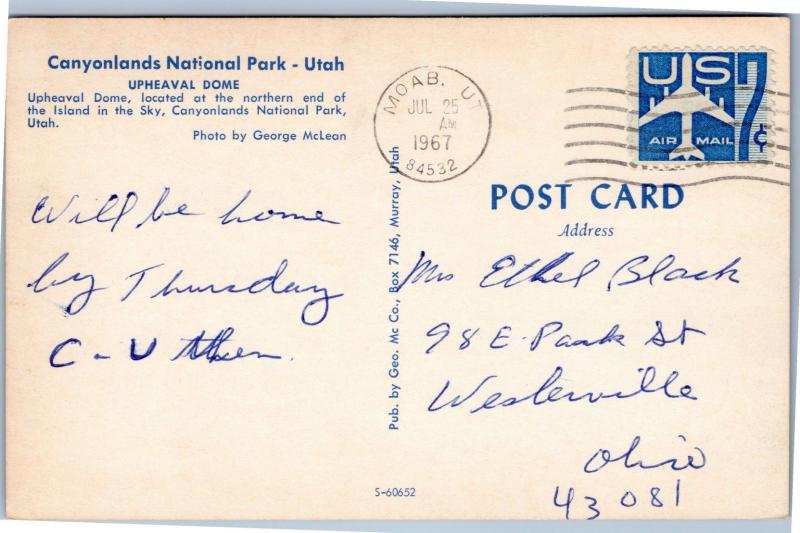 Canyonlands National Park - Utah
UPHEAVAL DOME
Upheaval Dome, located at the northern end of
the Island in the Sky, Canyonlands National Park,
Utah.
Photo by George McLean
Will be home
by Thursday
C-U then.
Pub. by Geo. Mc Co., Box 7146, Murray, Utah
S-60652
MOAB, UT
JUL 25
AM
1967
84532
US 7¢
AIR MAIL
POST CARD
Address
Mrs Ethel Black
98 E. Park St
Westerville
Ohio
43081